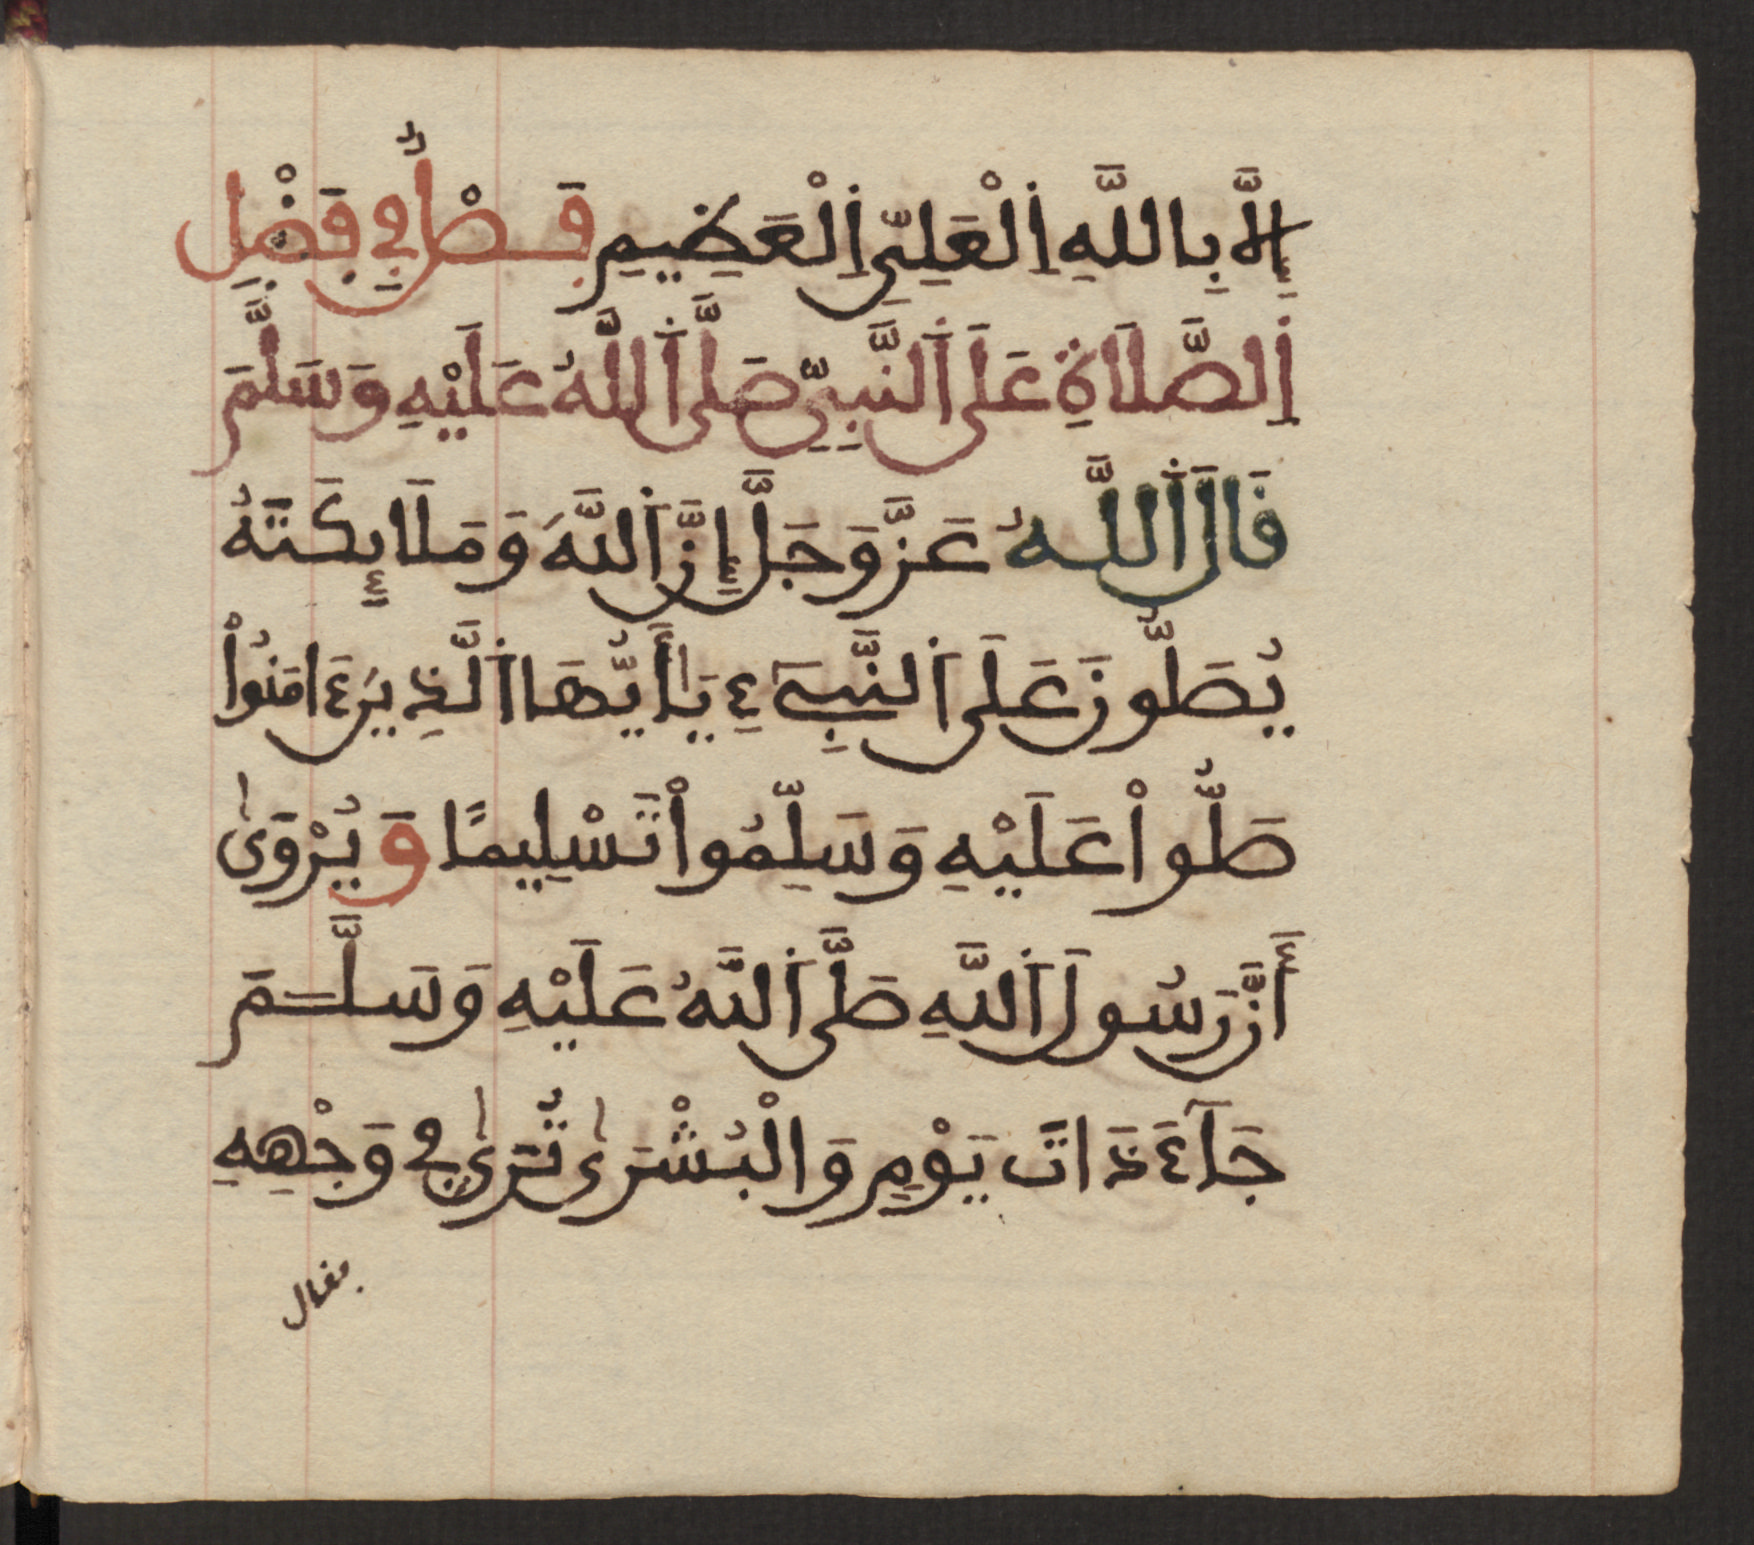 إِلَّا بِاللَّهِ اِلْعَلِيِّ اِلْعَظِيمِ فَصْلٌ فِي فَضْلِ
اِلصَّلَاةِ عَلَى اَلنَّبِيِّ صَلَّى اَللَّهُ عَلَيْهِ وَسَلَّمَ
قَالَ اَللَّهُ عَزَّ وَجَلَّ إِنَّ اَللَّهَ وَمَلَائِكَتَهُ
يُصَلُّونَ عَلَى اَلنَّبِيءِ يَٰأَيُّهَا اَلَّذِينَ ءَامَنُواْ
صَلُّواْ عَلَيْهِ وَسَلِّمُواْ تَسْلِيمًا وَيُرْوَىٰ
أَنَّ رَسُولَ اَللَّهِ صَلَّى اَللَّهُ عَلَيْهِ وَسَلَّمَ
جَآءَ ذَاتَ يَوْمٍ وَالْبُشْرَىٰ تُرَىٰ فِي وَجْهِهِ
فقال